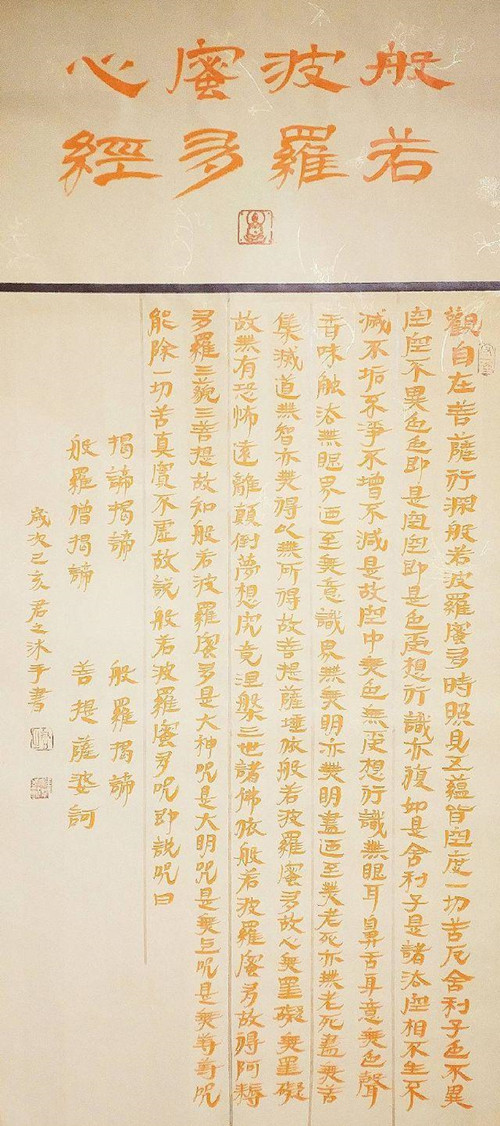 般若
波羅
蜜多
心經
觀自在菩薩行深般若波羅蜜多時照見五蘊皆空度一切苦厄舍利子色不異
空空不異色色即是空空即是色受想行識亦復如是舍利子是諸法空相不生不
滅不垢不淨不增不減是故空中無色無受想行識無眼耳鼻舌身意無色聲
香味触法無眼界迺至無意識界無無明亦無明盡迺至無老死亦無老死盡無苦
集滅道無智亦無得以無所得故菩提薩埵依般若波羅蜜多故心無罣礙無罣礙
故無有恐怖遠離顛倒夢想究竟涅槃三世諸佛依般若波羅蜜多故得阿耨
多羅三藐三菩提故知般若波羅蜜多是大神呪是大明呪是無上呪是無等等呪
能除一切苦真實不虛故說般若波羅蜜多呪即說呪曰
揭諦揭諦 般羅揭諦
般羅僧揭諦 菩提薩婆訶
歲次己亥君之沐手書